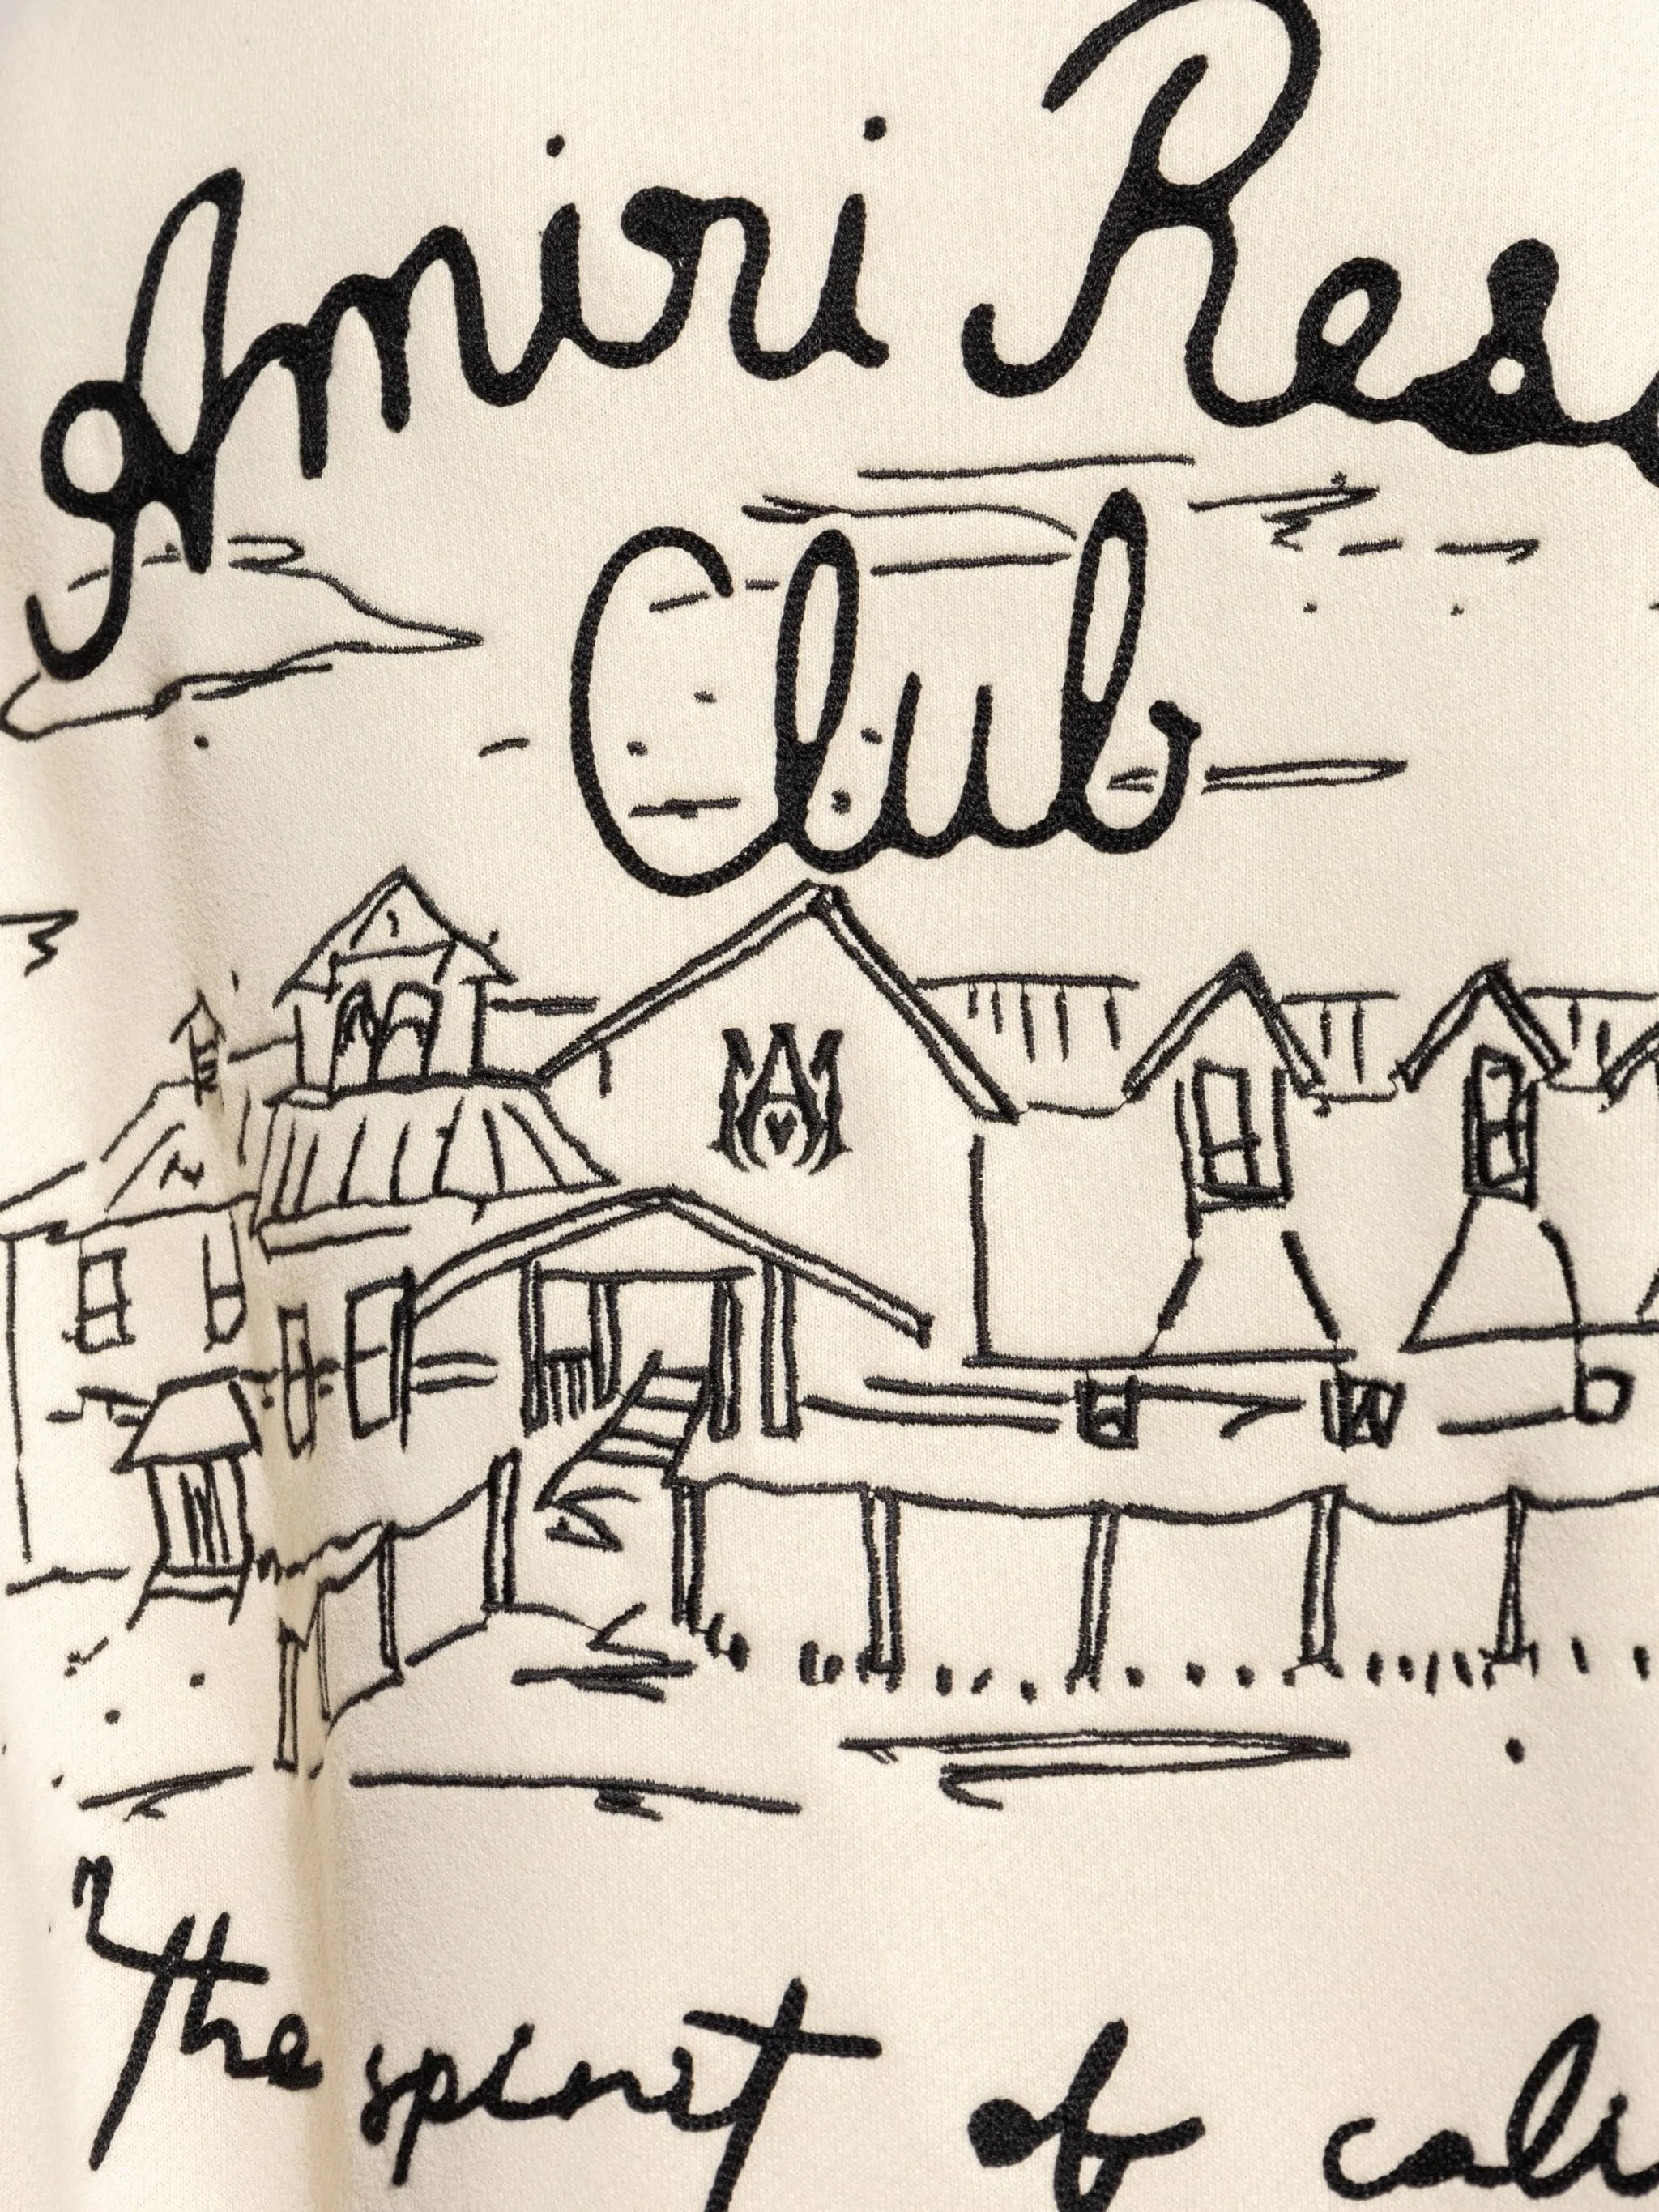 Amiri Res
Club
MA
The spirit of cali